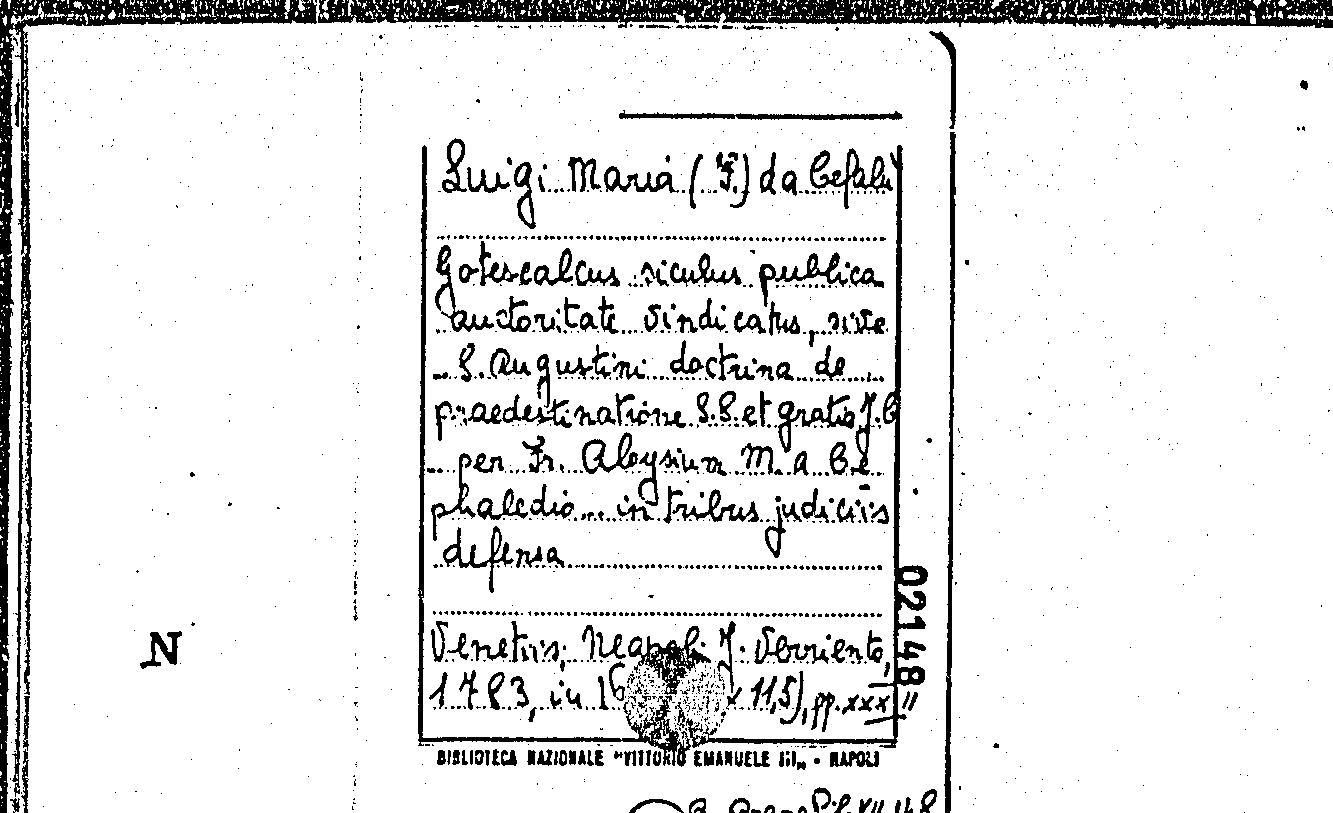 Luigi Maria (F.) da Cefalù
Gotescalcus siculus publica
auctoritate vindicatus, sive
S. Augustini doctrina de
praedestinatione S.S. et gratis J.C
per Fr. Aloysium M. a Ce
phaledio... in tribus judiciis
defensa
Venetiis; Neapoli J. Verriento,
1783, in 16 x 11,5), pp. xxx
02148
N
BIBLIOTECA NAZIONALE "VITTORIO EMANUELE III„ - NAPOLI